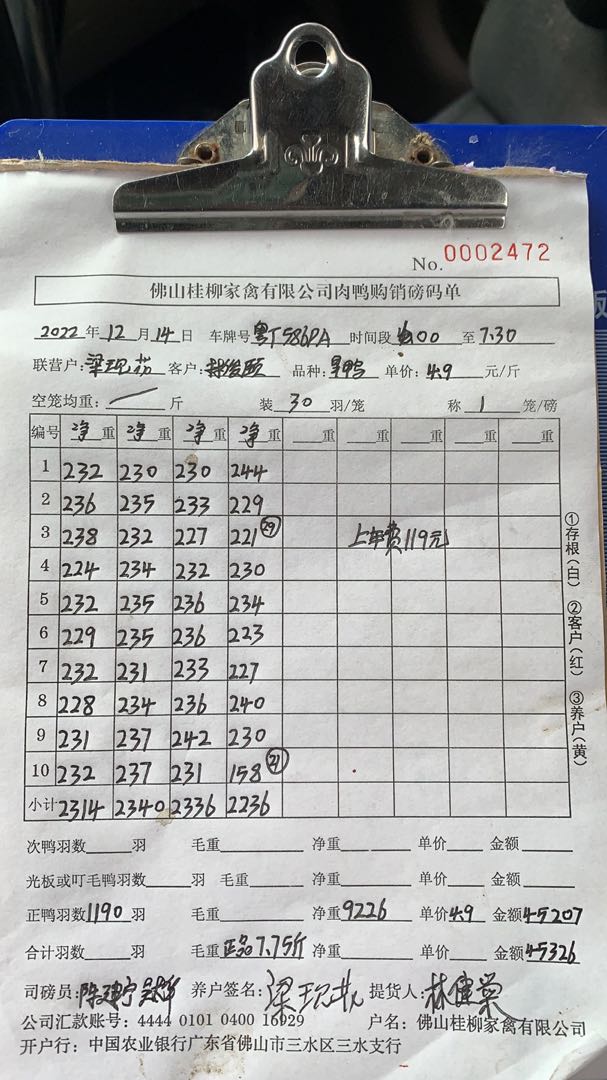 No. 0002472
佛山桂柳家禽有限公司肉鸭购销磅码单
2022年12月14日 车牌号 粤T586PA 时间段 00 至 7.30
联营户: 梁现 客户: 品种: 单价: 4.9 元/斤
空笼均重: 斤 装 30 羽/笼 称 1 笼/磅
编号 净重 净重 净重 净重 重 重 重 重 重
1 232 230 230 244
2 236 235 233 229
3 238 232 227 221 29 上车费119元
4 224 234 232 230
5 232 235 236 234
6 229 235 236 223
7 232 231 233 227
8 228 234 236 240
9 231 237 242 230
10 232 237 231 158 21
小计 2314 2340 2336 2236
①存根(白) ②客户(红) ③养户(黄)
次鸭羽数 羽 毛重 净重 单价 金额
光板或叮毛鸭羽数 羽 毛重 净重 单价 金额
正鸭羽数 1190 羽 毛重 净重 9226 单价 4.9 金额 45207
合计羽数 羽 毛重 正品7.75斤 净重 单价 金额 45326
司磅员: 养户签名: 梁现 提货人: 林健荣
公司汇款账号: 4444 0101 0400 16929 户名: 佛山桂柳家禽有限公司
开户行: 中国农业银行广东省佛山市三水区三水支行